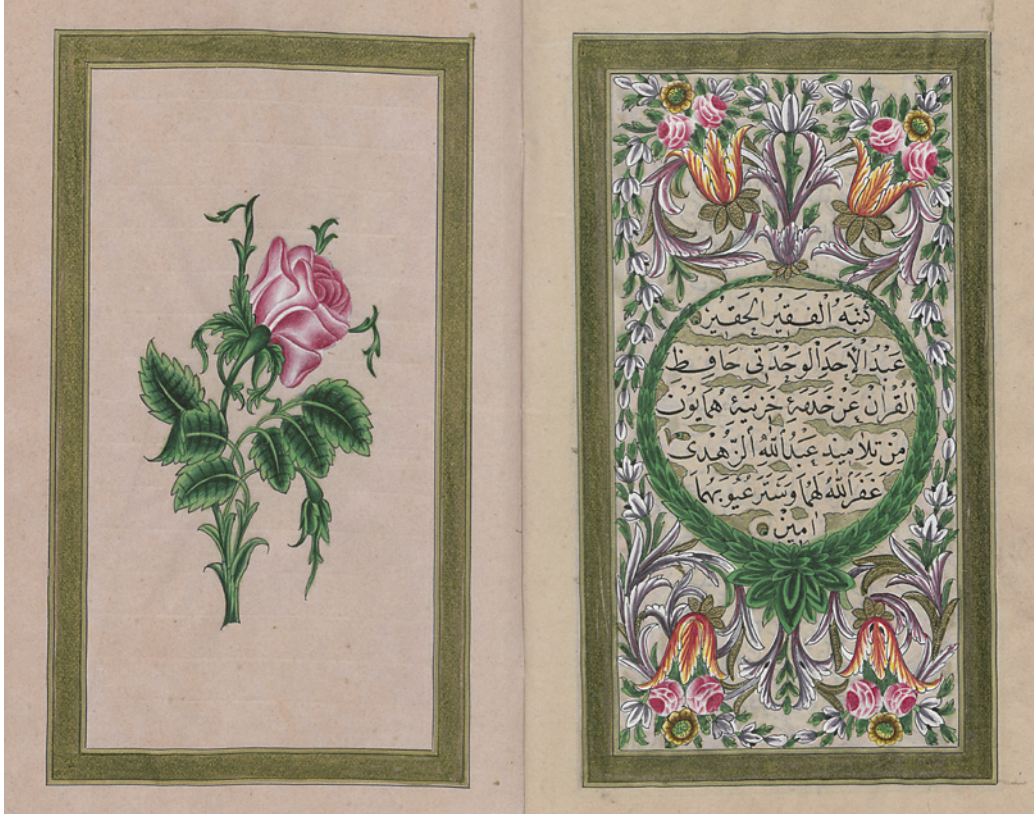 كتبه الفقير الحقير
عبد الأحد الوحدتي حافظ
القرآن عن خدمة خزينة همايون
من تلاميذ عبد الله الزهدي
غفر الله لهما وستر عيوبهما
امين